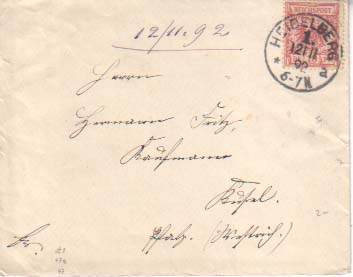 12/11.92
REICHSPOST
HEIDELBERG
1.
12 11
92
6-7N
* a
Herrn
Hermann Fritz,
Kaufmann
Kusel.
Pfalz. (Westrich).
fr.